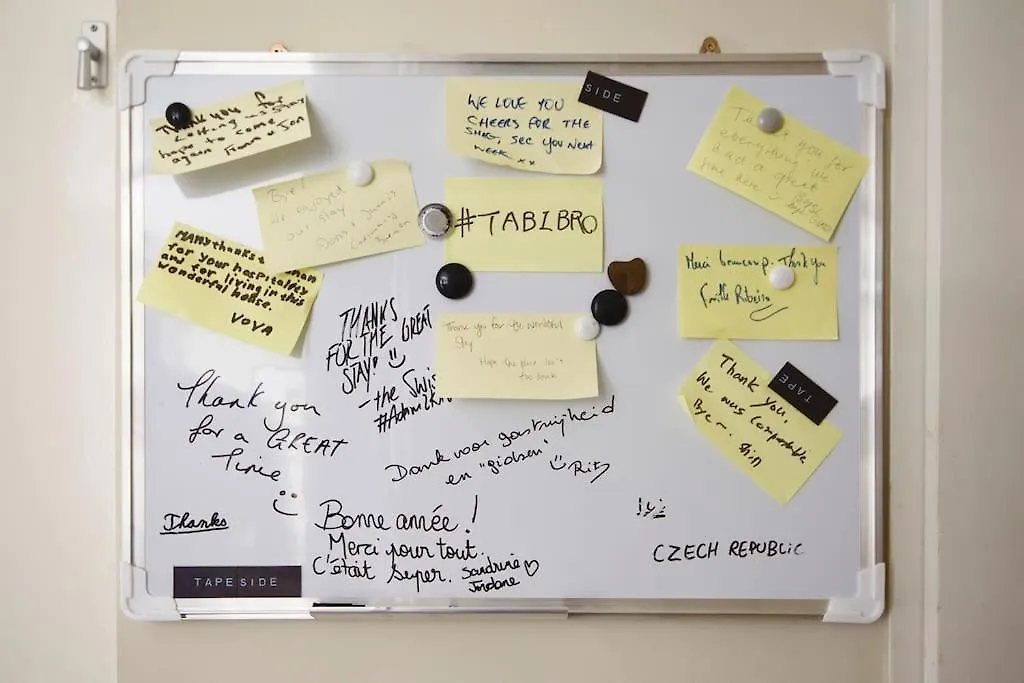 Thank you for
Letting us stay
hope to come
again
Jon
WE LOVE YOU
CHEERS FOR THE
SHAG, SEE YOU NEXT
WEEK xx
SIDE
Thank you for
everything. We
had a great
time here
Bye!
We enjoyed
our stay
#TABIBRO
MANY thanks
for your hospitality
and for living in this
wonderful house.
VOVA
Merci beaucoup. Thank you
Famille Ribeiro
THANKS
FOR THE GREAT
STAY!
- the Swis
Thank you for the wonderful
stay
Hope the
isn't
too
Thank you.
We was comportable
Bye~.
TAPE
Thank you
for a GREAT
Time
Dank voor gastvrijheid
en "gidsen"
Thanks
Bonne année!
Merci pour tout.
C'était super. Sandrine
Jordane
CZECH REPUBLIC
TAPE SIDE